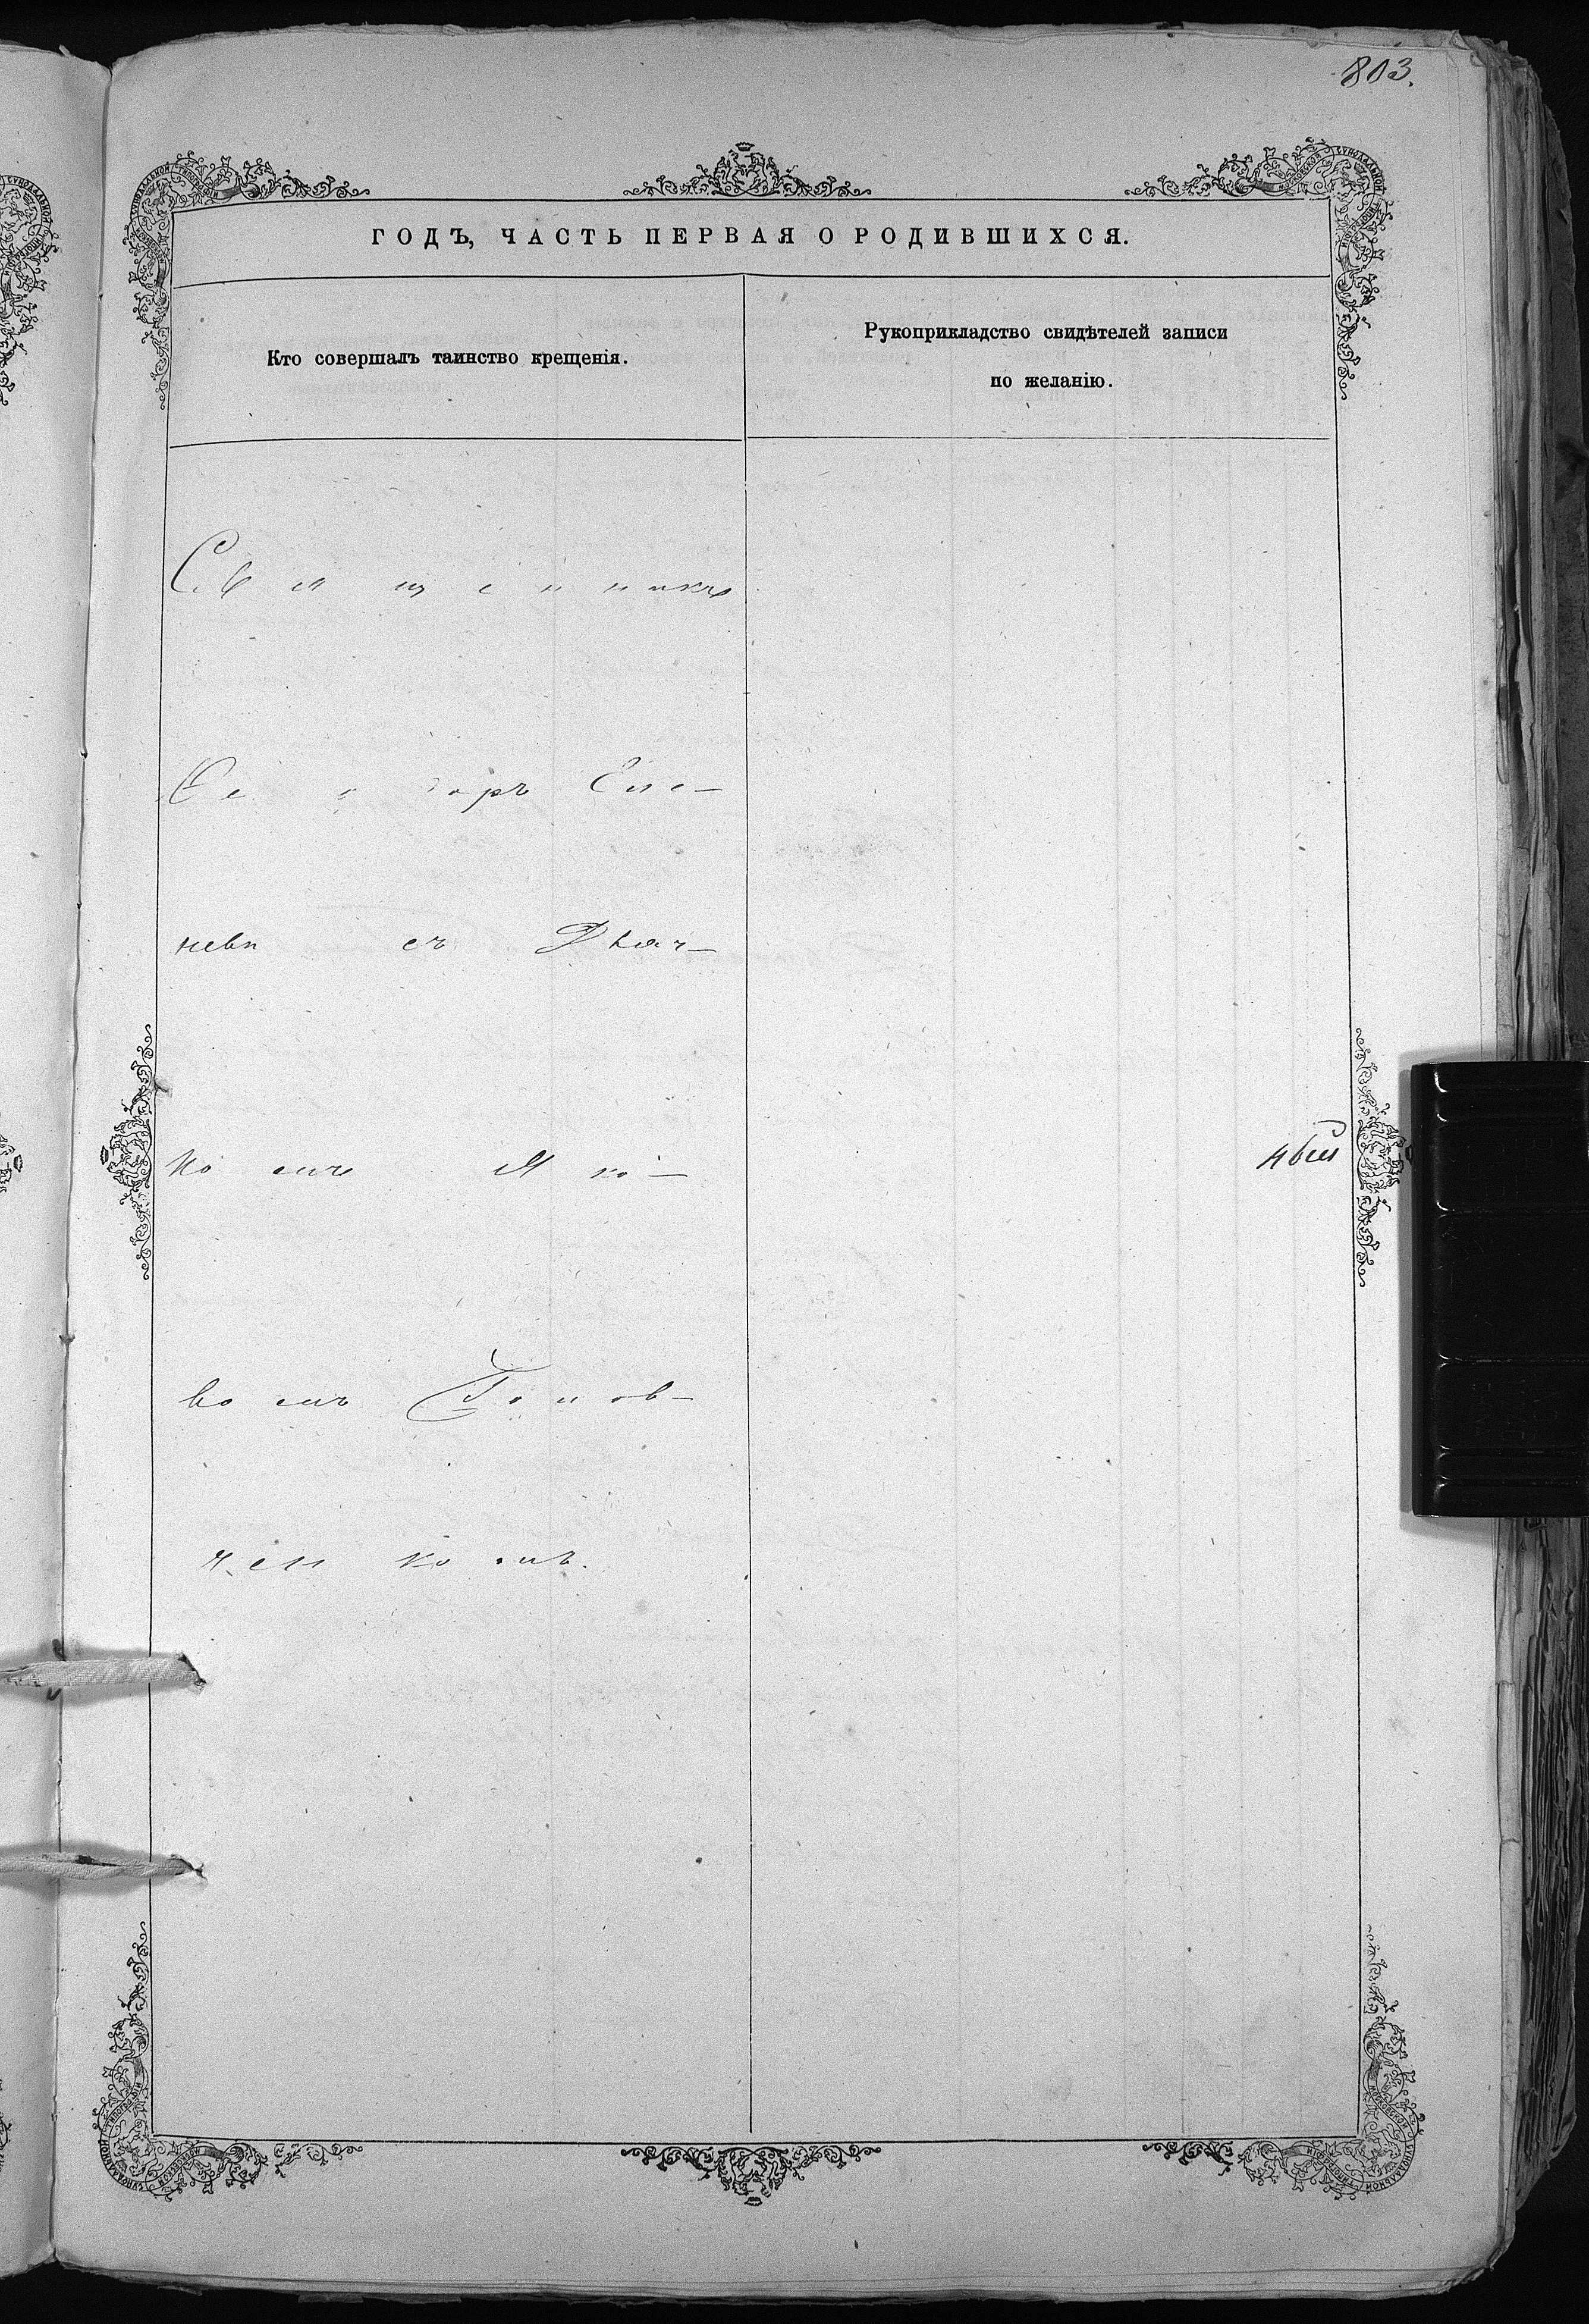 803.
ГОДЪ, ЧАСТЬ ПЕРВАЯ О РОДИВШИХСЯ.
Кто совершалъ таинство крещенія.
Рукоприкладство свидѣтелей записи
по желанію.
Священникъ
Ѳеодоръ
съ Дьяч-
комъ Яко-
вомъ Голов-
ченкомъ.